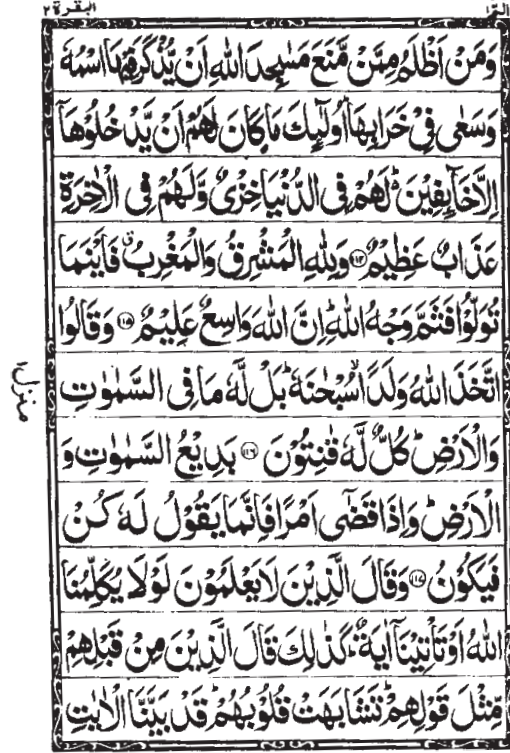 الٓمّٓ ١ البقرة ٢
وَمَنْ اَظْلَمُ مِمَّنْ مَّنَعَ مَسٰجِدَ اللّٰهِ اَنْ يُّذْكَرَ فِيْهَا اسْمُهٗ
وَسَعٰى فِيْ خَرَابِهَا ؕ اُولٰٓئِكَ مَا كَانَ لَهُمْ اَنْ يَّدْخُلُوْهَاۤ
اِلَّا خَآئِفِيْنَ ؕ لَهُمْ فِي الدُّنْيَا خِزْيٌ وَّلَهُمْ فِي الْاٰخِرَةِ
عَذَابٌ عَظِيْمٌ ﴿۱۱۴﴾ وَلِلّٰهِ الْمَشْرِقُ وَالْمَغْرِبُ ۗ فَاَيْنَمَا
تُوَلُّوْا فَثَمَّ وَجْهُ اللّٰهِ ؕ اِنَّ اللّٰهَ وَاسِعٌ عَلِيْمٌ ﴿۱۱۵﴾ وَقَالُوا
اتَّخَذَ اللّٰهُ وَلَدًا ۙ سُبْحٰنَهٗ ؕ بَلْ لَّهٗ مَا فِي السَّمٰوٰتِ
وَالْاَرْضِ ؕ كُلٌّ لَّهٗ قٰنِتُوْنَ ﴿۱۱۶﴾ بَدِيْعُ السَّمٰوٰتِ وَ
الْاَرْضِ ؕ وَاِذَا قَضٰۤى اَمْرًا فَاِنَّمَا يَقُوْلُ لَهٗ كُنْ
فَيَكُوْنُ ﴿۱۱۷﴾ وَقَالَ الَّذِيْنَ لَا يَعْلَمُوْنَ لَوْلَا يُكَلِّمُنَا
اللّٰهُ اَوْ تَاْتِيْنَاۤ اٰيَةٌ ؕ كَذٰلِكَ قَالَ الَّذِيْنَ مِنْ قَبْلِهِمْ
مِّثْلَ قَوْلِهِمْ ؕ تَشَابَهَتْ قُلُوْبُهُمْ ؕ قَدْ بَيَّنَّا الْاٰيٰتِ
منزل ١